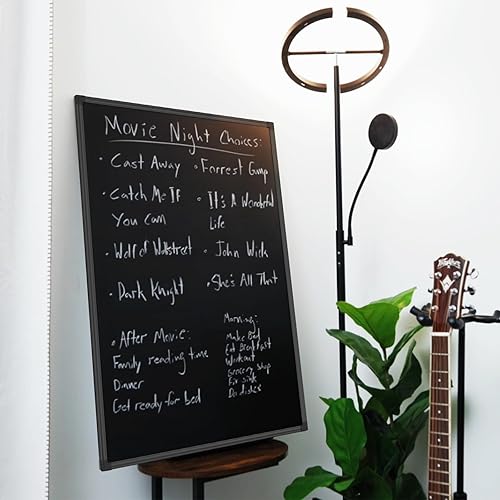 Movie Night Choices:
• Cast Away • Forrest Gump
• Catch Me If You Can
• It's A Wonderful Life
• Wolf of Wallstreet • John Wick
• Dark Knight • She's All That
• After Movie:
Family reading time
Dinner
Get ready for bed
Morning:
Make Bed
Eat Breakfast
Workout
Grocery Shop
Fix Sink
Do dishes